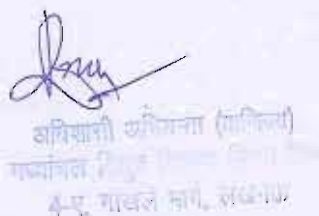 अधिशासी अभियन्ता (वाणिज्य)
मध्यांचल विद्युत वितरण निगम
4-ए, गोखले मार्ग, लखनऊ